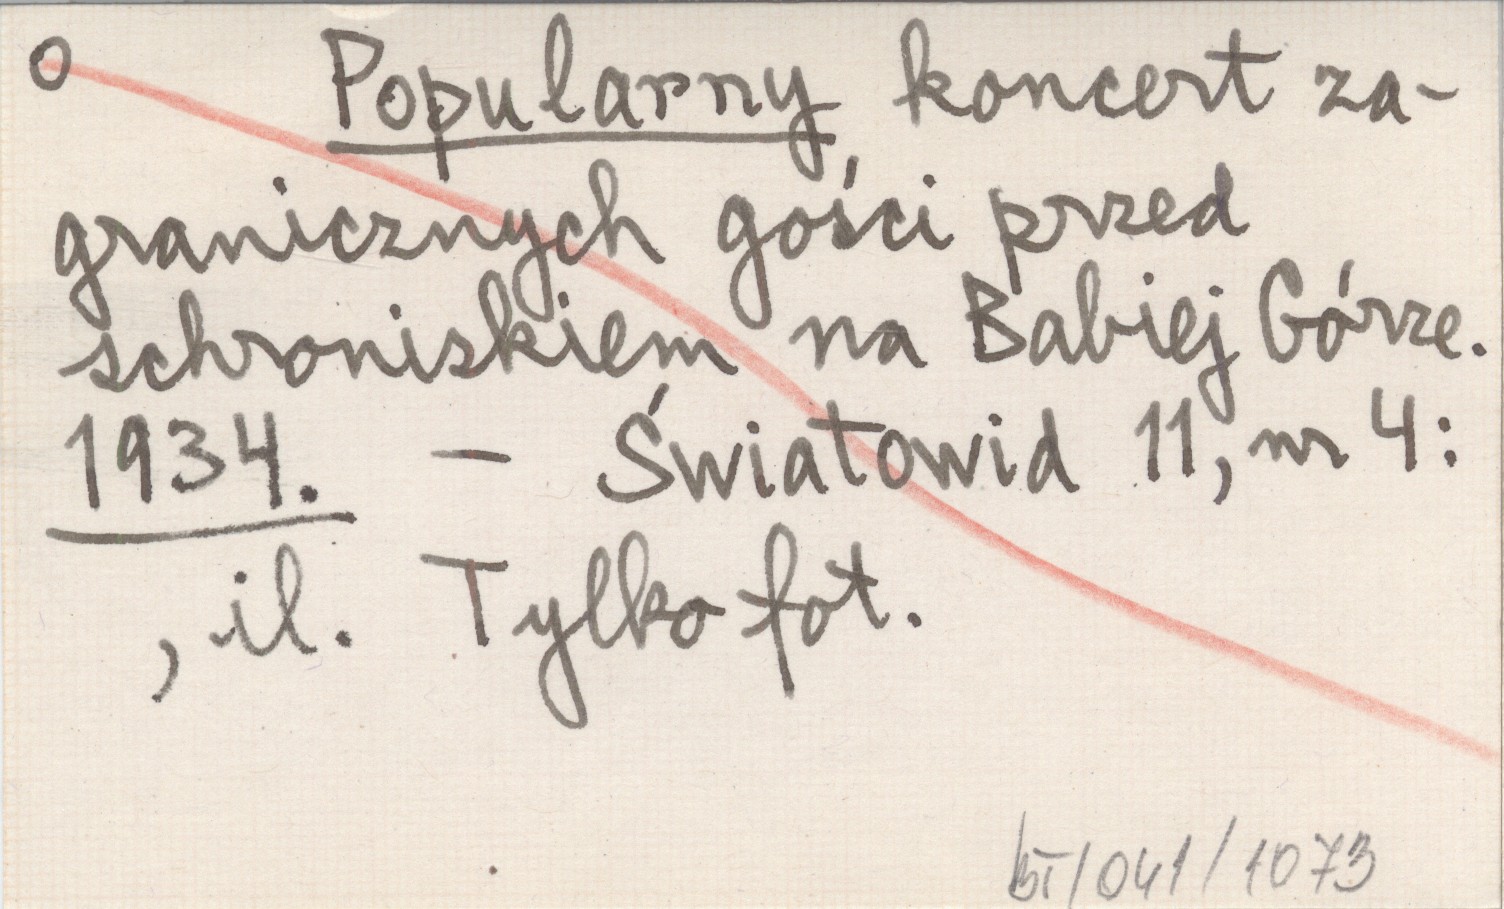 o Popularny koncert za-
granicznych gości przed
schroniskiem na Babiej Górze.
1934. – Światowid 11, nr 4:
, il. Tylko fot.
bT/041/1073